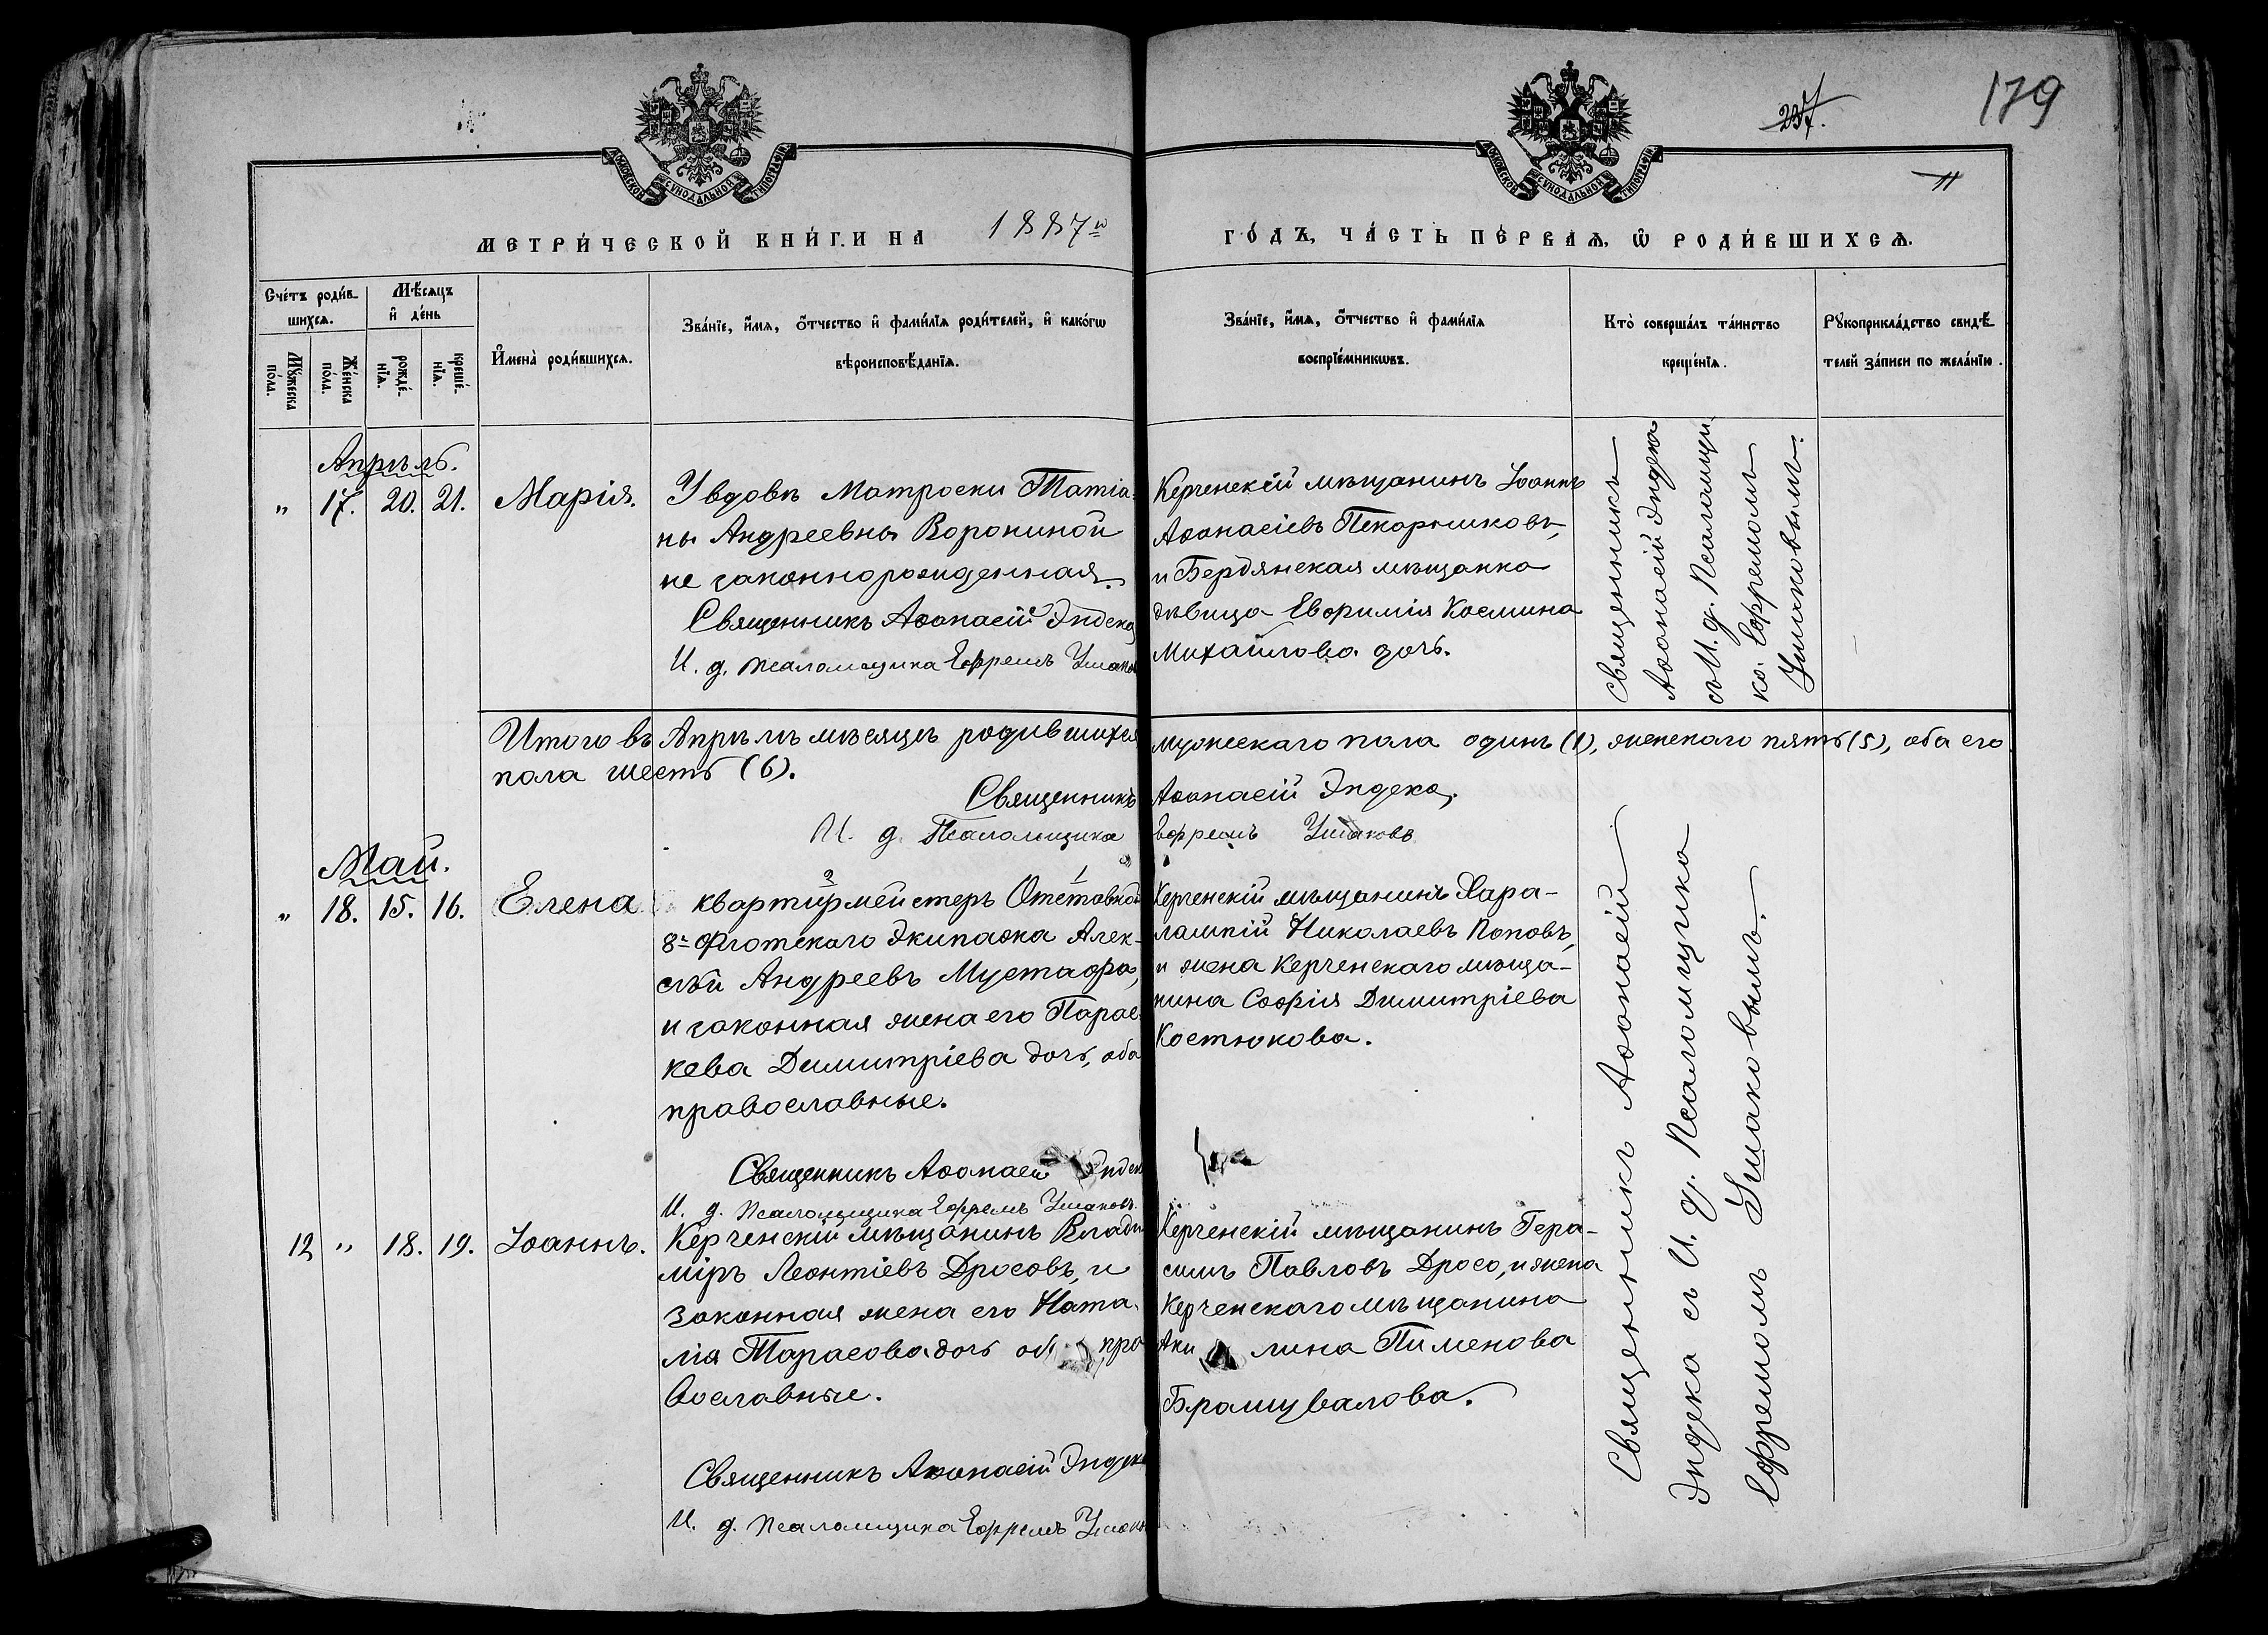 237.
179
11
МОСКОВСКОЙ СѴНОДАЛЬНОЙ ТИПОГРАФІИ
МОСКОВСКОЙ СѴНОДАЛЬНОЙ ТИПОГРАФІИ
МЕТРИ́ЧЕСКОЙ КНИ́ГИ НА 1887й
ГО́ДЪ, ЧА́СТЬ ПЕ́РВАѦ, Ѡ РОДИ́ВШИХСѦ.
Сче́тъ роди́в-
шихсѧ.
Мѣ́сѧцъ
и҆ де́нь
Мꙋ́жеска
по́ла.
Же́нска
по́ла.
рожде́-
нїѧ.
креще́-
нїѧ.
И҆мена̀ роди́вшихсѧ.
Зва́нїе, и҆́мѧ, ѻ҆́тчество и҆ фами́лїѧ роди́телей, и҆ како́гѡ
вѣроисповѣ́данїѧ.
Зва́нїе, и҆́мѧ, ѻ҆́тчество и҆ фами́лїѧ
воспрїе́мникѡвъ.
Кто̀ соверша́лъ та́инство
креще́нїѧ.
Рꙋкоприкла́дство свидѣ́-
телей за́писи по жела́нїю.
Апрѣль.
" 17. 20. 21. Марія.
У вдовы Матроски Татіа-
ны Андреевны Ворониной
не законнорожденная.
Священникъ Аѳанасій Эндека
И. д. псаломщика Ефремъ Ушаков
Керченскій мѣщанинъ Іоаннъ
Аѳанасіевъ Пекарниковъ,
и Бердянская мѣщанка
дѣвица Евфимія Косьмина
Михайлова дочь.
Священникъ
Аѳанасій Эндека
съ И. д. Псаломщи
ка Ефремомъ
Ушаковымъ.
Итого въ Апрѣлѣ мѣсяцѣ родившихся мужескаго пола одинъ (1), женскаго пять (5), оба его
пола шесть (6).
Священникъ Аѳанасій Эндека,
И. д. Псаломщика Ефремъ Ушаковъ
Май.
" 18. 15. 16. Елена
2 1
квартирмейстеръ Отставной
8го Флотскаго Экипажа Алек-
сѣй Андреевъ Мустафа,
и законная жена его Парас-
кева Димитріева дочь, оба
православные.
Священникъ Аѳанасій Эндек
И. д. Псаломщика Ефремъ Ушаковъ.
Керченскій мѣщанинъ Хара-
лампій Николаевъ Поповъ,
и жена Керченскаго мѣща-
нина Софія Димитріева
Костюкова.
12 " 18. 19. Іоаннъ.
Керченскій мѣщанинъ Влади
міръ Леонтіевъ Дросовъ, и
законная жена его Ната-
лія Тарасова дочь об пра
вославные.
Священникъ Аѳанасій Эндека
И. д. Псаломщика Ефремъ Ушаков
Керченскій мѣщанинъ Гера-
симъ Павловъ Дросо, и жена
Керченскаго мѣщанина
Аки лина Пименова
Священникъ Аѳанасій
Эндека съ И. д. Псаломщика
Ефремомъ Ушаковымъ.